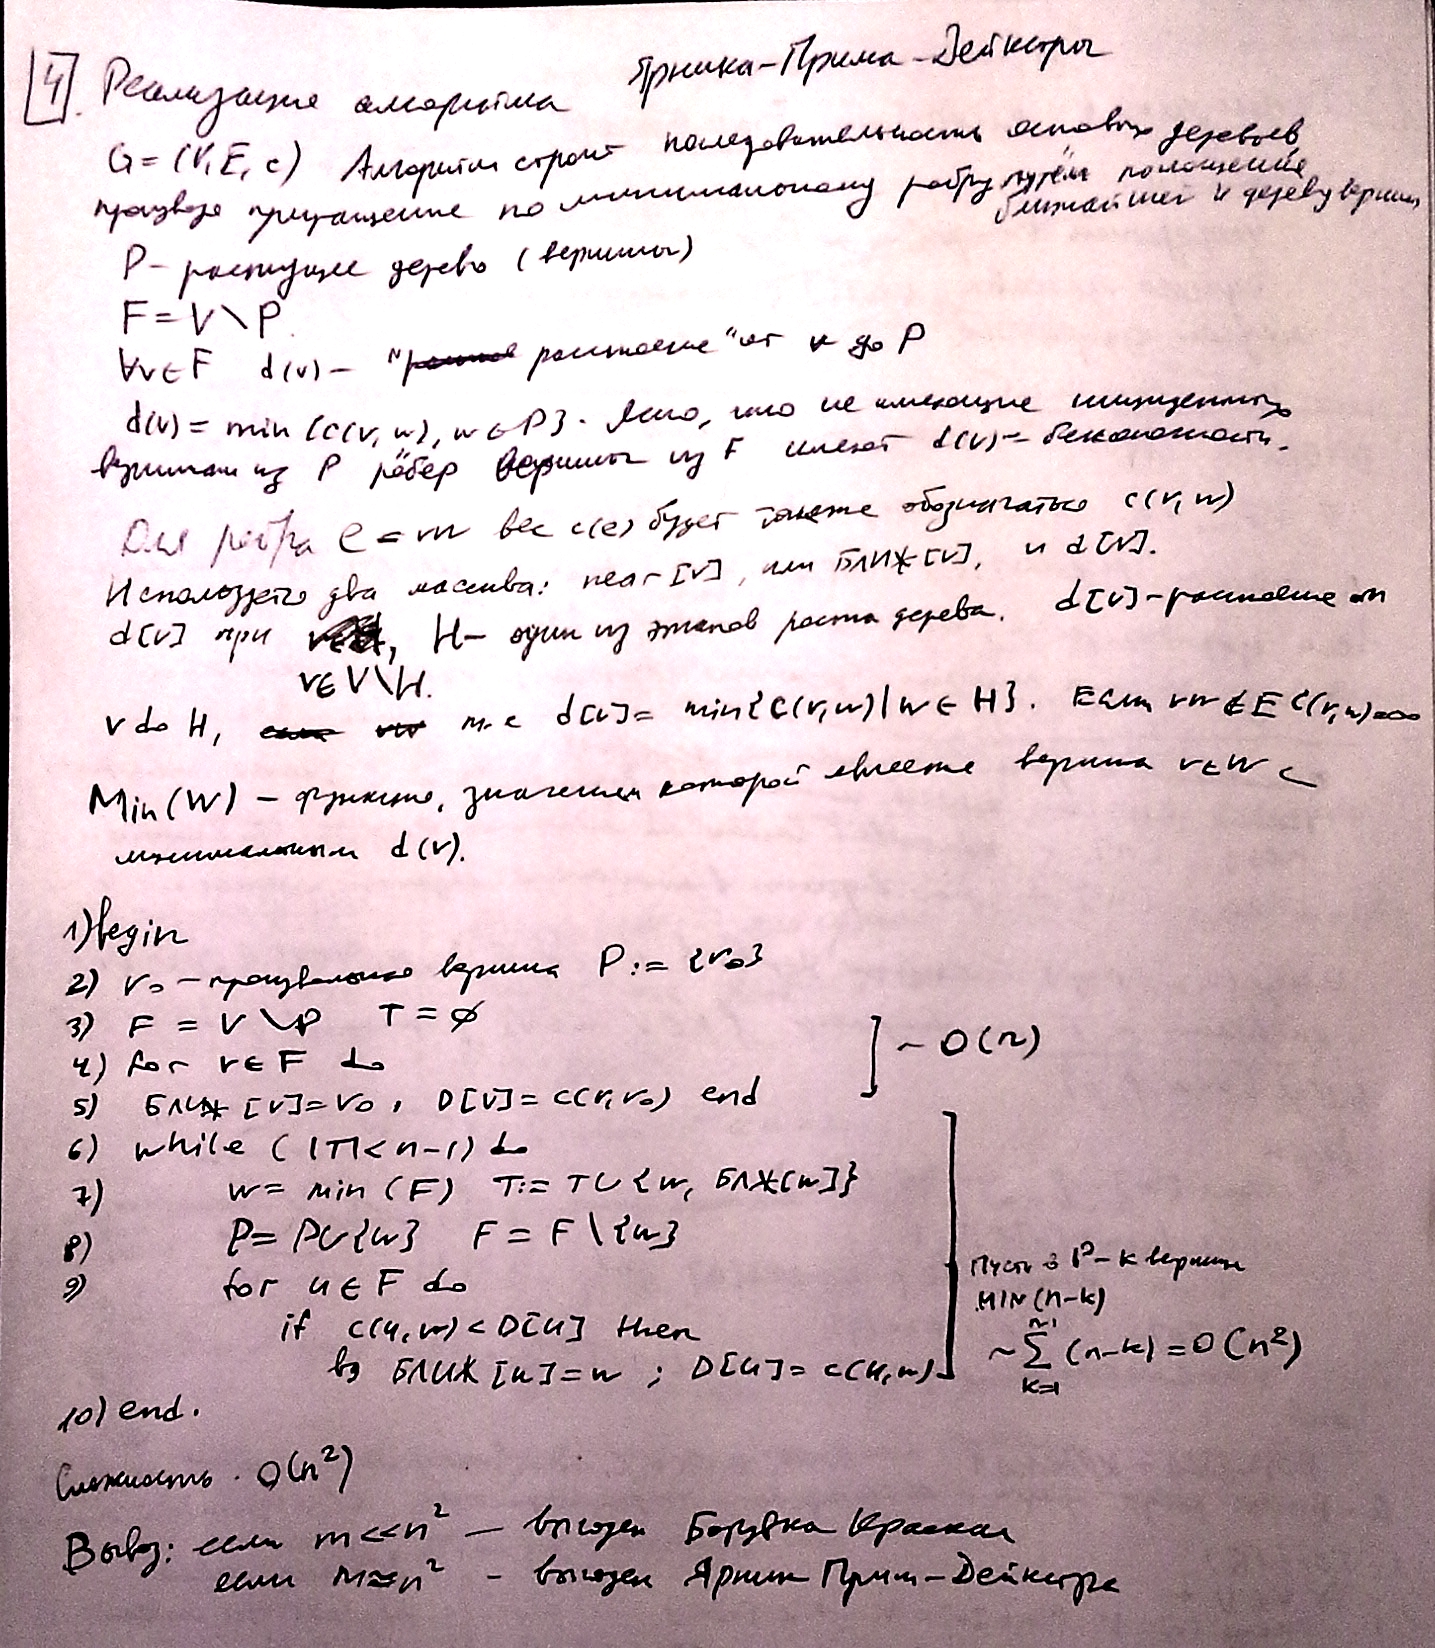 4. Реализация алгоритма Ярника-Прима-Дейкстры
G=(V,E,c) Алгоритм строит последовательность остовых деревьев,
приращение по минимальному ребру путём поглощения
ближайшей к дереву вершины
P - растущее дерево (вершины)
F = V \ P.
∀v∈F d(v) - "расстояние" от v до P
d(v) = min{c(v,w), w∈P}. Ясно, что не имеющие инцидентных
вершинам из P рёбер вершины из F имеют d(v) = бесконечность.
Для ребра e = vw вес c(e) будет также обозначаться c(v,w)
Используется два массива: near[v], или БЛИЖ[v], и d[v].
d[v] при v∈V\H, H - один из этапов роста дерева. d[v] - расстояние от
v до H, т.е d[v] = min{c(v,w) | w∈H}. Если vw∉E c(v,w)=∞
Min(W) - функция, значением которой является вершина v∈W с
минимальным d(v).
1) begin
2) v₀ - произвольная вершина P := {v₀}
3) F = V \ P T = ∅
4) for v∈F do
5) БЛИЖ [v]=v₀, D[v]=c(v,v₀) end
] ~ O(n)
6) while (|T|<n-1) do
7) w = min (F) T:= T∪{w, БЛЖ[w]}
8) P = P∪{w} F = F \ {w}
9) for u∈F do
if c(u,w)<D[u] then
БЛИЖ [u]=w ; D[u]= c(u,w)
Пусть в P - k вершин
MIN (n-k)
~ ∑ₖ₌₁ⁿ⁻¹ (n-k) = O(n²)
10) end.
Сложность. O(n²)
Вывод: если m<<n² — выгоден Борувка Краскал
если m≈n² - выгоден Ярник Прим-Дейкстра